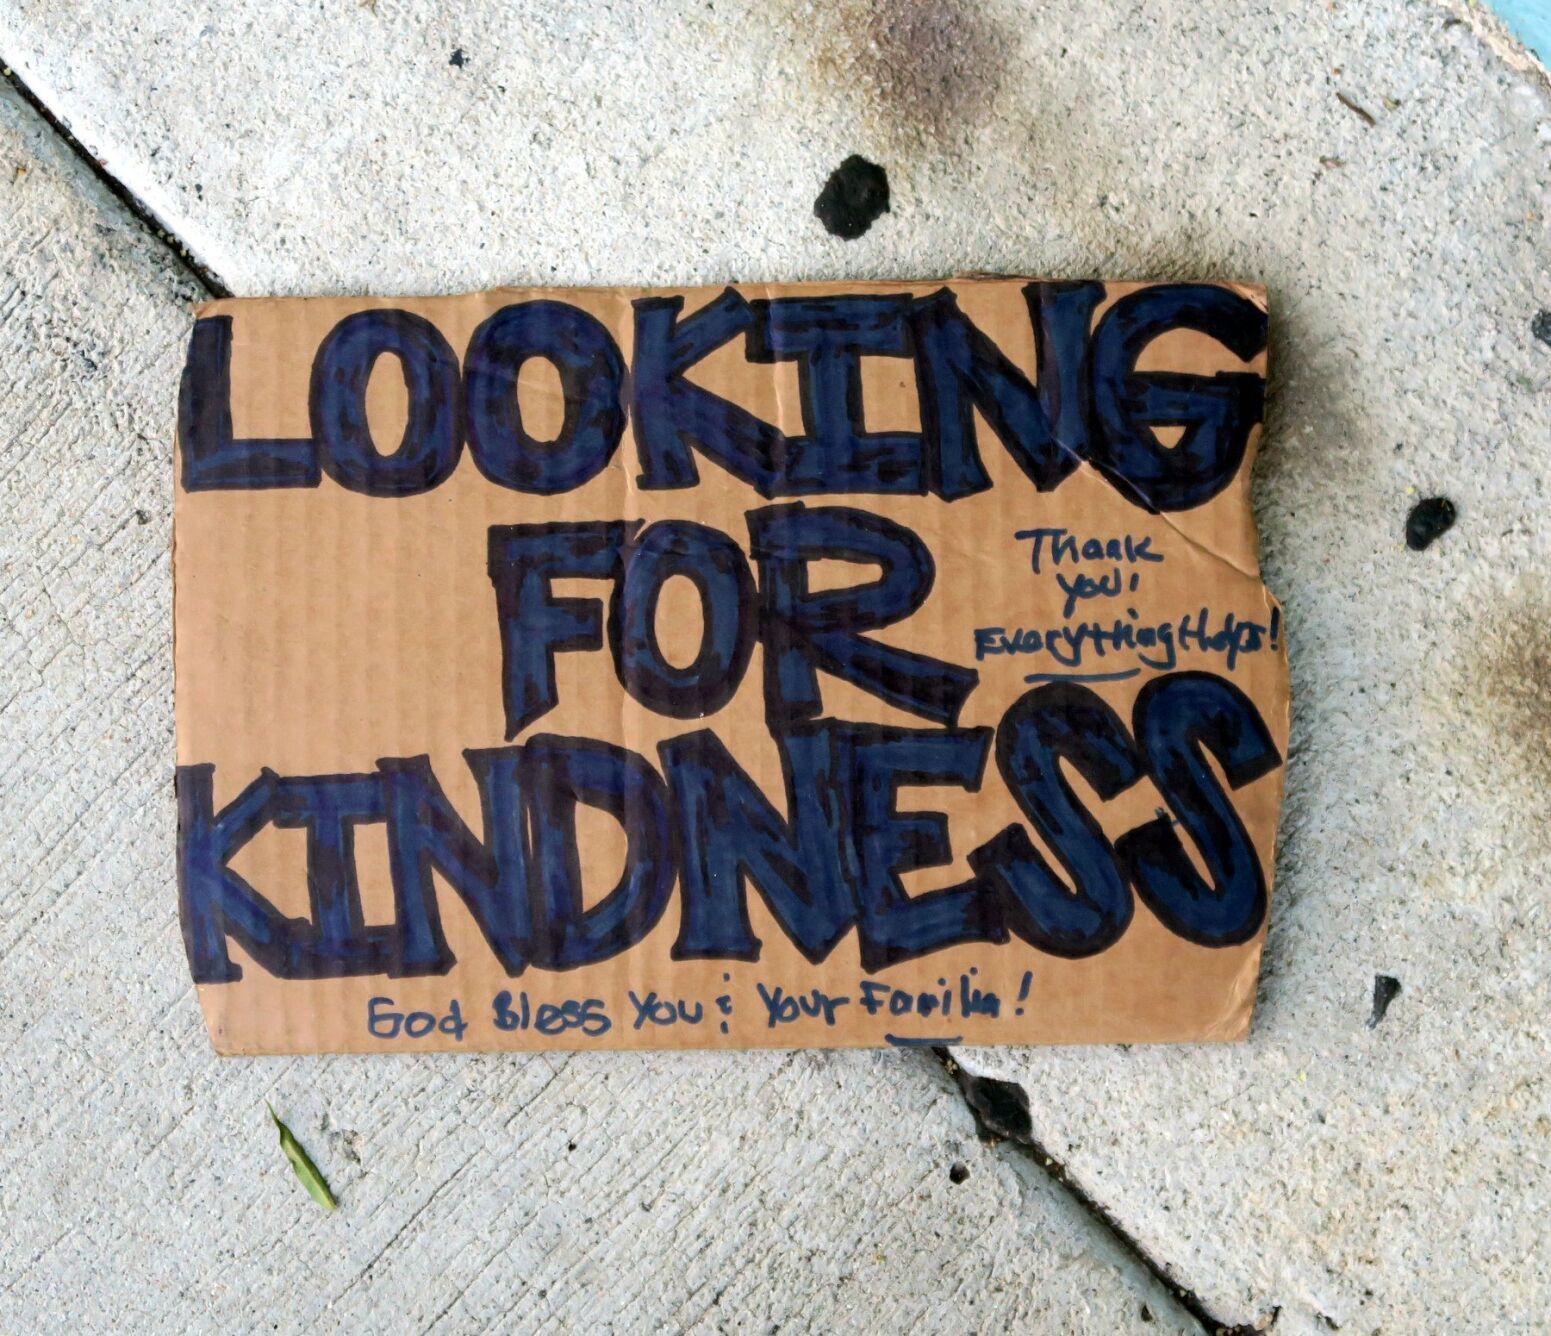 LOOKING
FOR
Thank
you!
Everything Helps!
KINDNESS
God Bless You & Your Familia!